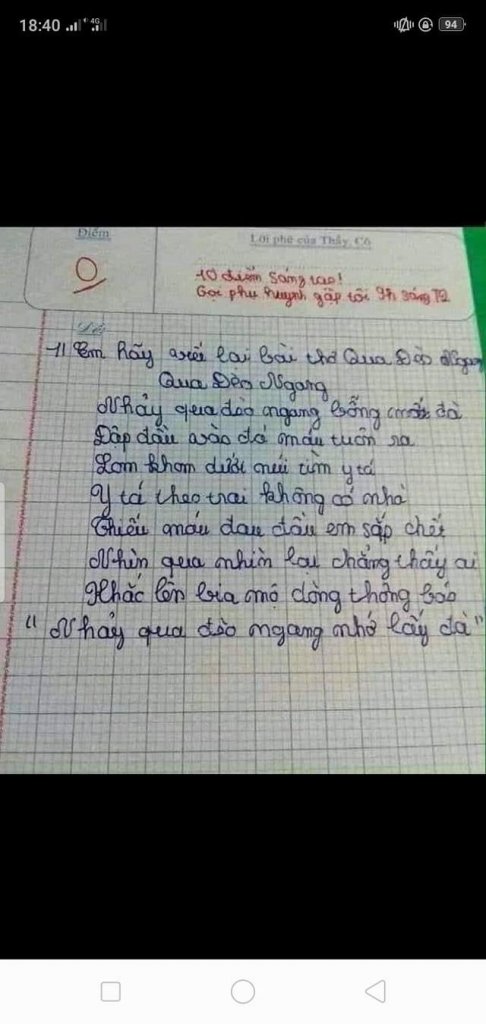 18:40
4G
94
Điểm
Lời phê của Thầy, Cô
0
10 điểm sáng tạo!
Gọi phụ huynh gặp tôi 9h sáng T2
1) Em hãy viết lại bài thơ Qua Đèo Ngang
Qua Đèo Ngang
Nhảy qua đèo ngang bỗng mất đà
Đập đầu vào đá máu tuôn ra
Lom khom dưới núi tìm y tá
Y tá theo trai không có nhà
Thiếu máu đau đầu em sắp chết
Nhìn qua nhìn lại chẳng thấy ai
Khắc lên bia mộ dòng thông báo
"Nhảy qua đèo ngang nhớ lấy đà"